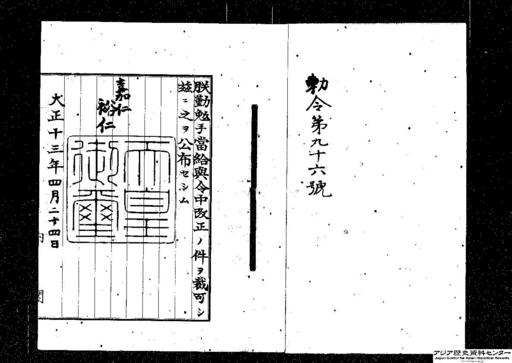 勅令第九十六號
朕勤勉手當給與令中改正ノ件ヲ裁可シ
茲ニ之ヲ公布セシム
嘉仁
裕仁
天皇
御璽
大正十三年四月二十四日
内閣
アジア歴史資料センター
Japan Center for Asian Historical Records
http://www.jacar.go.jp